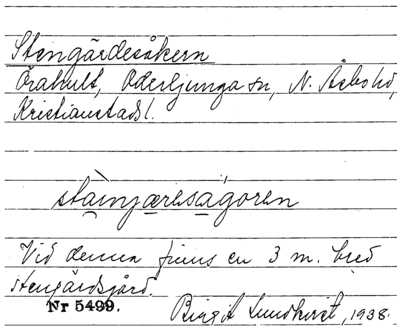 Stengärdesåkern
Örahult, Oderljunga sn, N. Åsbo hd,
Kristianstads l.
stàinjæresågoren
Vid denna finns en 3 m. bred
stengärdsgård.
Nr 5499.
Birgit Lundkvist, 1938.